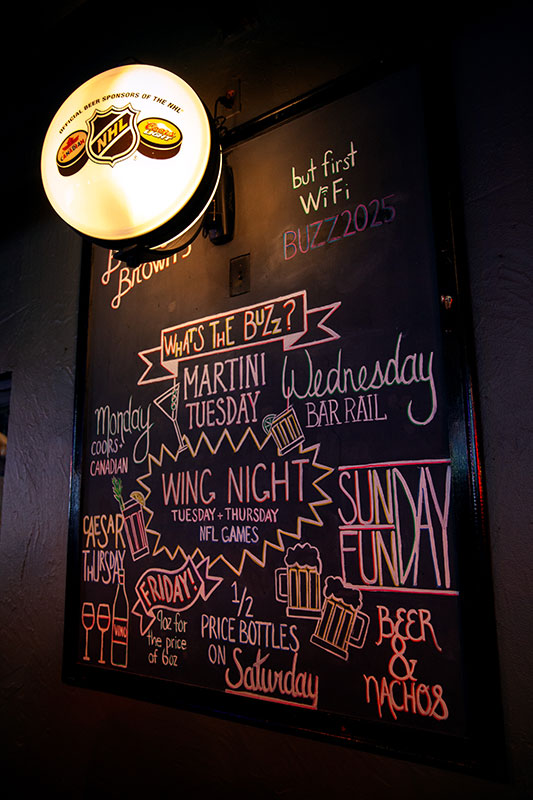 OFFICIAL BEER SPONSORS OF THE NHL
CANADIAN
NHL
Coors
LIGHT
Brown's
but first
WiFi
BUZZ2025
WHAT'S THE BUZZ?
MARTINI
TUESDAY
Wednesday
BAR RAIL
Monday
COORS +
CANADIAN
WING NIGHT
TUESDAY + THURSDAY
NFL GAMES
SUNDAY
FUNDAY
CAESAR
THURSDAY
FRIDAY!
9oz for
the price
of 6oz
VINO
1/2
PRICE BOTTLES
ON
Saturday
BEER
&
NACHOS